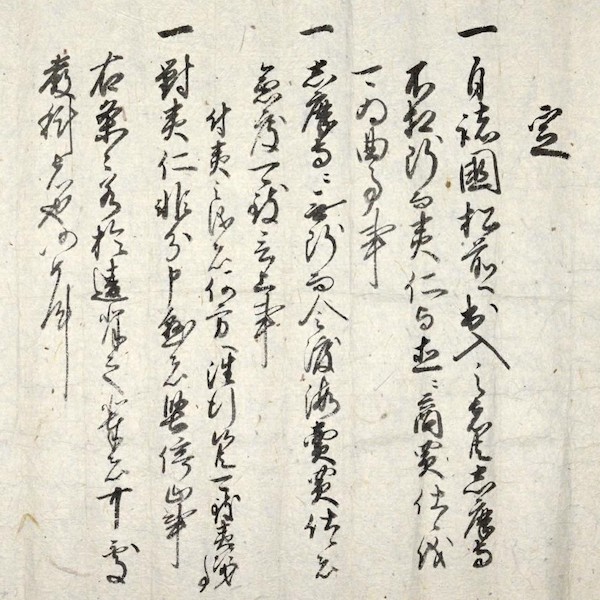 定
一 自諸國松前へ出入之者共志摩守
不相断而夷仁与直ニ商買仕候儀
可為曲事事
一 志摩守ニ無断而令渡海賣買仕候者
急度可致言上事
付夷之儀者何方へ往行候共可致夷次第事
一 對夷仁非分申懸者堅停止事
右条々若於違背之輩者可處
嚴科者也仍如件